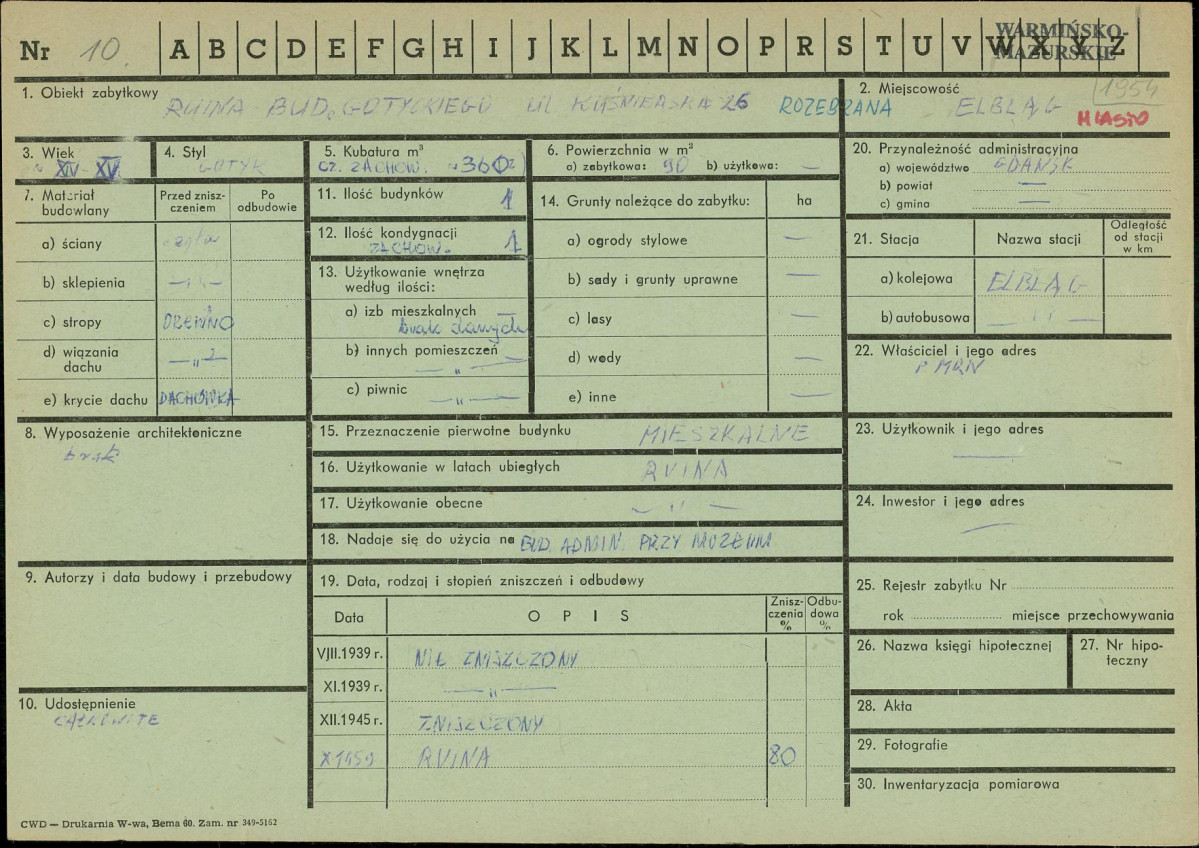 Nr 10. A B C D E F G H I J K L M N O P R S T U V W X Y Z
WARMIŃSKO-
MAZURSKIE
1. Obiekt zabytkowy RUINA BUD. GOTYCKIEGO UL. KUŚNIERSKA 26 ROZEBRANA
2. Miejscowość 1954
ELBLĄG MIASTO
3. Wiek
XIV - XV
4. Styl
GOTYK
5. Kubatura m³
CZ. ZACHOW. ~360
6. Powierzchnia w m²
a) zabytkowa: 90 b) użytkowa: —
7. Materiał budowlany
Przed zniszczeniem
Po odbudowie
a) ściany cegła
b) sklepienia — " —
c) stropy DREWNO
d) wiązania dachu — " —
e) krycie dachu DACHÓWKA
8. Wyposażenie architektoniczne
brak
9. Autorzy i data budowy i przebudowy
10. Udostępnienie
CAŁKOWITE
11. Ilość budynków 1
12. Ilość kondygnacji
ZACHOW. 1
13. Użytkowanie wnętrza
według ilości:
a) izb mieszkalnych —
brak danych
b) innych pomieszczeń —
— " —
c) piwnic — " —
14. Grunty należące do zabytku: ha
a) ogrody stylowe —
b) sady i grunty uprawne —
c) lasy —
d) wody —
e) inne —
15. Przeznaczenie pierwotne budynku MIESZKALNE
16. Użytkowanie w latach ubiegłych RUINA
17. Użytkowanie obecne — " —
18. Nadaje się do użycia na BUD. ADMIN. PRZY MUZEUM
19. Data, rodzaj i stopień zniszczeń i odbudowy
Data OPIS Zniszczenia % Odbudowa %
VIII.1939 r. NIE ZNISZCZONY
XI.1939 r. — " —
XII.1945 r. ZNISZCZONY
X 1959 RUINA 80
20. Przynależność administracyjna
a) województwo GDAŃSK
b) powiat —
c) gmina —
21. Stacja Nazwa stacji Odległość od stacji w km
a) kolejowa ELBLĄG
b) autobusowa — " —
22. Właściciel i jego adres
P MRN
23. Użytkownik i jego adres
—
24. Inwestor i jego adres
—
25. Rejestr zabytku Nr
rok miejsce przechowywania
26. Nazwa księgi hipotecznej
27. Nr hipoteczny
28. Akta
29. Fotografie
30. Inwentaryzacja pomiarowa
CWD — Drukarnia W-wa, Bema 60. Zam. nr 349-5162